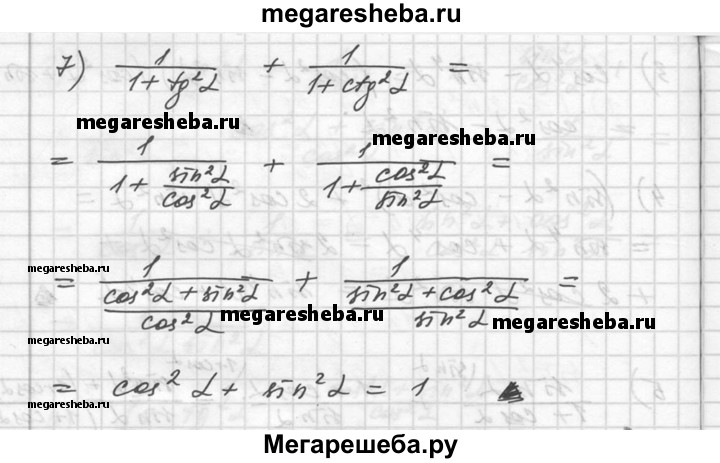 megaresheba.ru
7) 1/(1 + tg²α) + 1/(1 + ctg²α) =
megaresheba.ru
megaresheba.ru
= 1/(1 + sin²α/cos²α) + 1/(1 + cos²α/sin²α) =
megaresheba.ru
= 1/((cos²α + sin²α)/cos²α) + 1/((sin²α + cos²α)/sin²α) =
megaresheba.ru
megaresheba.ru
megaresheba.ru
= cos²α + sin²α = 1
megaresheba.ru
Мегарешеба.ру